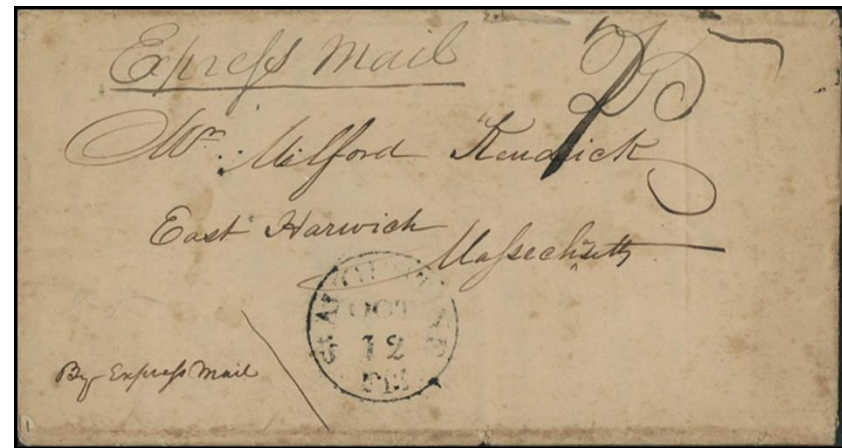 Express Mail
Mr. Milford Kendrick
East Harwich
Massechusetts
OCT
12
By Express Mail